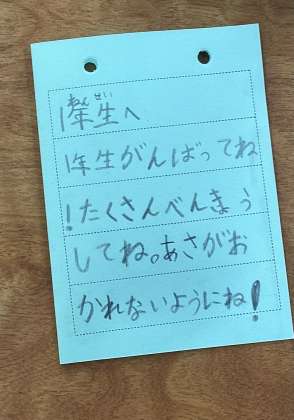 1年生へ
1年生がんばってね
!たくさんべんきょう
してね。あさがお
かれないようにね!